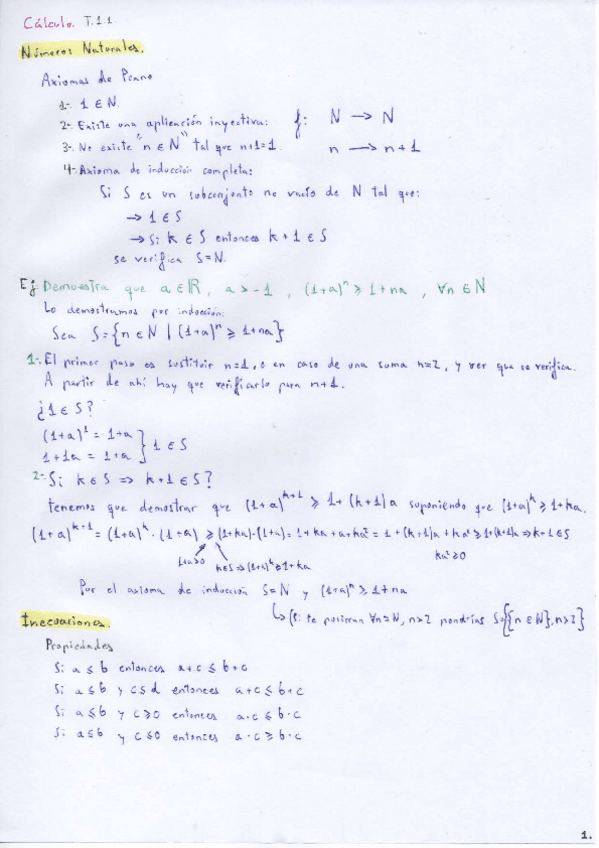 Cálculo. T.1.1.
Números Naturales.
Axiomas de Peano
1-. 1 ∈ N.
2-. Existe una aplicación inyectiva: f: N → N
3-. No existe "n ∈ N" tal que n+1=1. n → n+1
4-. Axioma de inducción completa:
Si S es un subconjunto no vacío de N tal que:
→ 1 ∈ S
→ Si k ∈ S entonces k+1 ∈ S
se verifica S=N.
Ej: Demuestra que a ∈ ℝ, a > -1, (1+a)^n ≥ 1+na, ∀n ∈ N
Lo demostramos por inducción:
Sea S={n ∈ N | (1+a)^n ≥ 1+na}
1-. El primer paso es sustituir n=1, o en caso de una suma n=2, y ver que se verifica.
A partir de ahí hay que verificarlo para n+1.
¿1 ∈ S?
(1+a)^1 = 1+a
1+1a = 1+a } 1 ∈ S
2-. Si k ∈ S ⇒ k+1 ∈ S?
tenemos que demostrar que (1+a)^{k+1} ≥ 1+(k+1)a suponiendo que (1+a)^k ≥ 1+ka.
(1+a)^{k+1} = (1+a)^k · (1+a) ≥ (1+ka)·(1+a) = 1+ka+a+ka² = 1+(k+1)a+ka² ≥ 1+(k+1)a ⇒ k+1 ∈ S
1+a>0 k∈S ⇒ (1+a)^k ≥ 1+ka ka² ≥ 0
Por el axioma de inducción S=N y (1+a)^n ≥ 1+na
↳ (Si te pusieran ∀n=N, n>2 pondrías {n ∈ N}, n>2}
Inecuaciones.
Propiedades
Si a ≤ b entonces a+c ≤ b+c
Si a ≤ b y c ≤ d entonces a+c ≤ b+c
Si a ≤ b y c ≥ 0 entonces a·c ≤ b·c
Si a ≤ b y c ≤ 0 entonces a·c ≥ b·c
1.